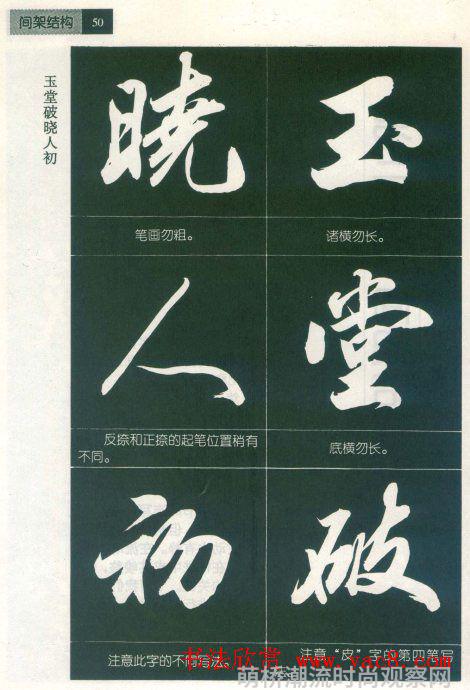 间架结构 50
玉堂破晓人初
玉
诸横勿长。
堂
底横勿长。
破
注意“皮”字的第四笔写
晓
笔画勿粗。
人
反捺和正捺的起笔位置稍有
不同。
初
注意此字的不同写法。
书法欣赏 www.yac8.com
萌桥潮流时尚观察网